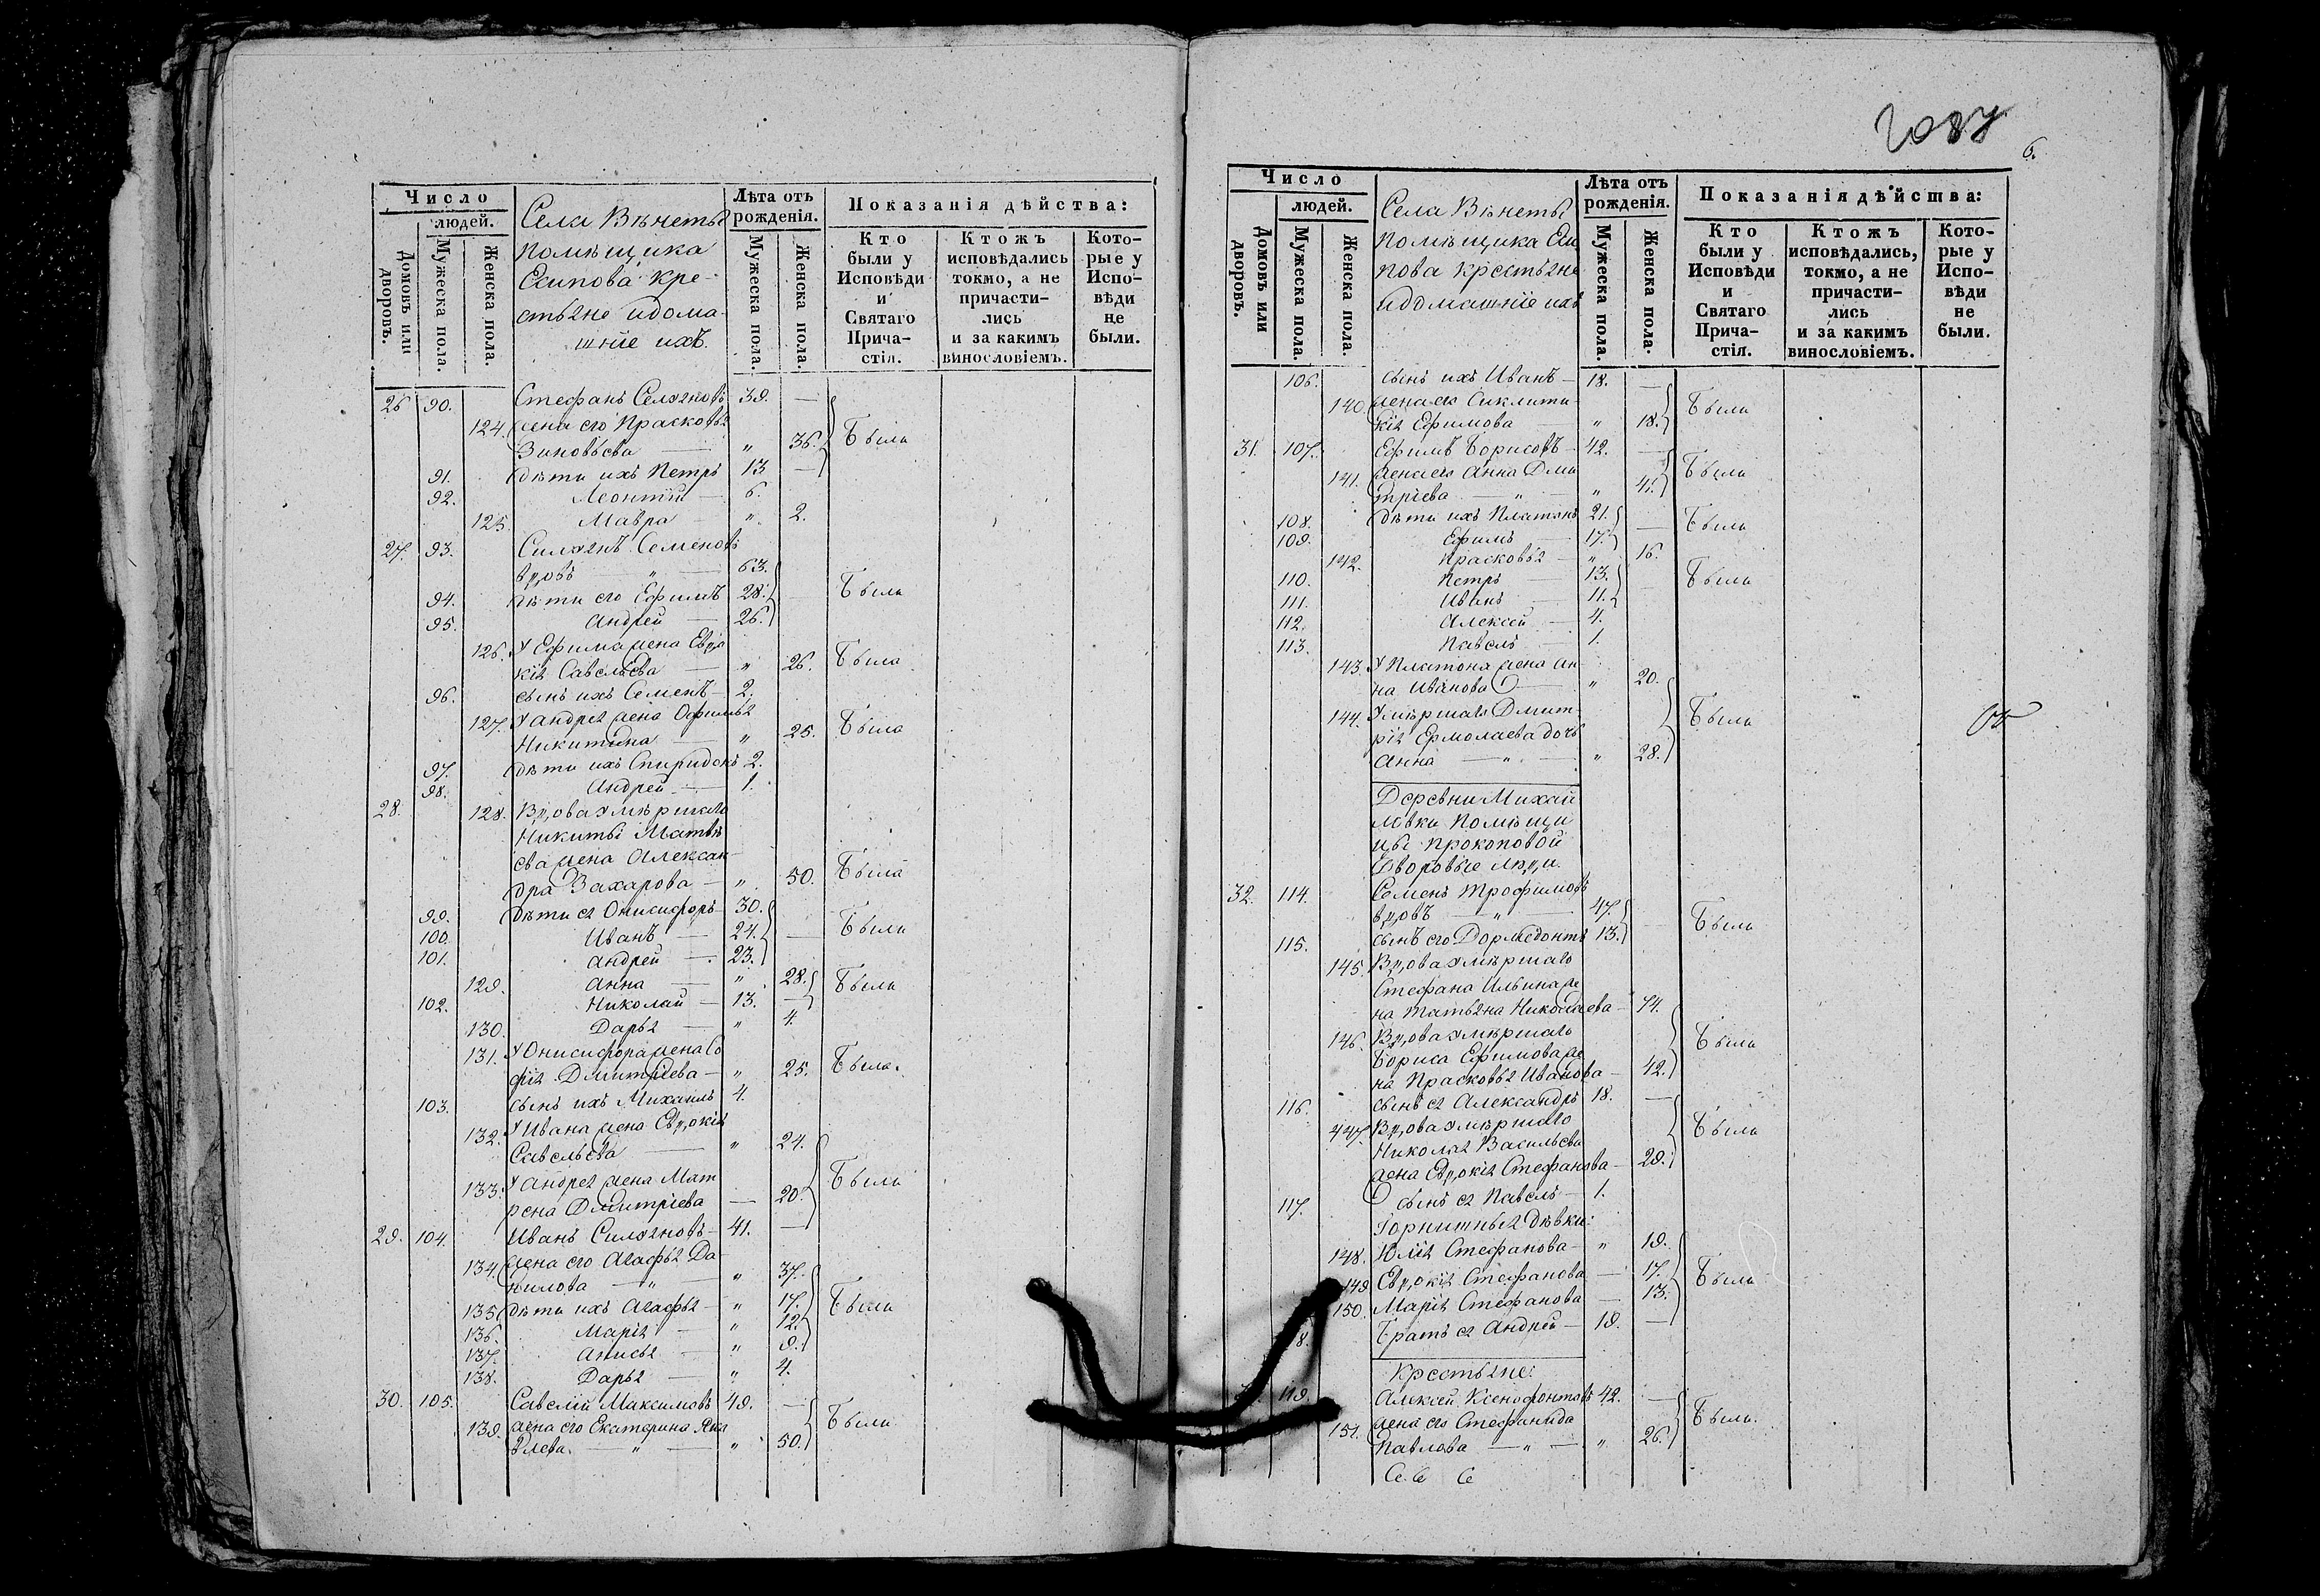 Число
людей.
Домовъ или дворовъ.
Мужеска пола.
Женска пола.
Села Вѣнеты
помѣщика
Есипова кре-
стьяне идома-
шніе ихъ.
Лѣта отъ
рожденія.
Мужеска пола.
Женска пола.
Показанія дѣйства:
Кто
были у
Исповѣди
и
Святаго
Прича-
стія.
Ктожъ
исповѣдались
токмо, а не
причасти-
лись
и за какимъ
винословіемъ.
Кото-
рые у
Испо-
вѣди
не
были.
26 90. Стефанъ Селяновъ 39. —
124. жена его Прасковья
Зиновьева — " 36. Были
91. дѣти ихъ Петръ 13 —
92. Леонтій — 6.
125. Мавра " 2.
27. 93. Силянъ Семеновъ
вдовъ — " — 63.
94. дѣти его Ефимъ 28. — Были
95. Андрей — 26.
126. У Ефима жена Евдо
кія Савельева — " 26. Была
96. сынъ ихъ Семенъ — 2.
127. У Андрея жена Офимья
Никитина — " 25. Была
97. дѣти ихъ Спиридонъ 2.
98. Андрей — 1.
28. 128. Вдова умѣршаго
Никиты Матвѣ
ева жена Алексан-
дра Захарова — " 50. Была
99. дѣти ея Онисифоръ — 30.
100. Иванъ — 24. — Были
101. Андрей — 23.
129. Анна — " 28. Были
102. Николай — 13. —
130. Дарья — " 4.
131. У Онисифора жена Со
фія Дмитріева — " 25. Была.
103. сынъ ихъ Михаилъ 4.
132. У Ивана жена Евдокія
Савельева — " 24.
133. У Андрея жена Мат Были
рена Дмитріева — 20.
29. 104. Иванъ Силяновъ — 41. —
134. жена его Агафья Да
нилова — " — " 37.
135. дѣти ихъ Агафья — " 17. Были
136. Марія — " 12.
137. Анисья — " 9.
138. Дарья — " 4.
30. 105. Савелій Максимовъ 49. —
139. жена его Екатерина Яка Были
влева. " — " 50.
2087
6.
Число
людей.
Домовъ или дворовъ.
Мужеска пола.
Женска пола.
Села Вѣнеты
помѣщика Еси
пова крестьяне
идомашніе ихъ
Лѣта отъ
рожденія.
Мужеска пола.
Женска пола.
Показанія дѣйства:
Кто
были у
Исповѣди
и
Святаго
Прича-
стія.
Ктожъ
исповѣдались,
токмо, а не
причасти-
лись
и за какимъ
винословіемъ.
Кото-
рые у
Испо-
вѣди
не
были.
106. сынъ ихъ Иванъ — 18. —
140. жена его Сиклити- Были
кія Ефимова — " 18.
31. 107. Ефимъ Борисовъ — 42. —
141. жена его Анна Дми Были
тріева — " — " 41.
108. дѣти ихъ Платонъ 21. — Были
109. Ефимъ — 17.
142. Прасковья — " 16.
110. Петръ — 13. — Были
111. Иванъ — 11.
112. Алексей — 4.
113. Павелъ — 1.
143. У Платона жена Ан-
на Иванова — " 20.
144. Умѣршаго Дмит- Были
рія Ермолаева дочь
Анна — " — " 28.
Деревни Михай
ловки помѣщи
цы Прокоповой
Дворовые люди.
32. 114. Семенъ Трофимовъ
вдовъ — " — 47.
115. сынъ его Дормедонтъ 13. — Были
145. Вдова умѣршаго
Стефана Ильина же
на Татьяна Николаева — 74.
146. Вдова умѣршаго Были
Бориса Ефимова же
на Прасковья Иванова — 42.
116. сынъ ея Александръ 18. —
147. Вдова умѣршаго Были
Николая Васильева
жена Евдокія Стефанова — 29.
117. сынъ ея Павелъ — 1.
Горнишныя дѣвки:
148. Юлія Стефанова — " 19.
149 Евдокія Стефанова — 17. Были
150. Марія Стефанова — 13.
8. Братъ ея Андрей — 19. —
Крестьяне:
119. Алексей Ксенофонтовъ 42. —
151. жена его Стефанида Были.
Павлова — " — " 26.